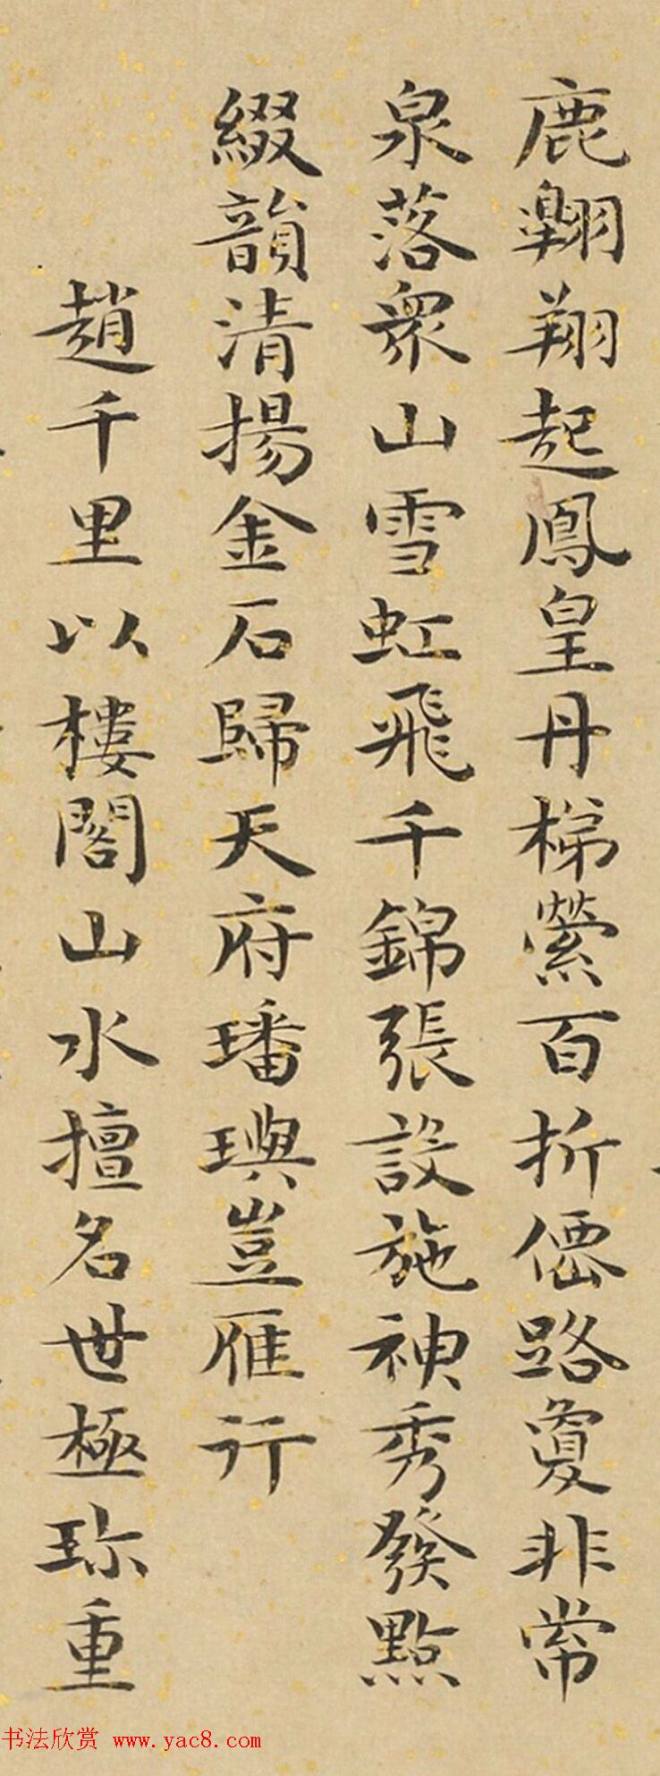 鹿翱翔起鳳皇丹梯縈百折僊路敻非常
泉落衆山雪虹飛千錦張設施神秀發點
綴韻清揚金石歸天府璠璵豈雁行
趙千里以樓閣山水擅名世極珎重
书法欣赏 www.yac8.com